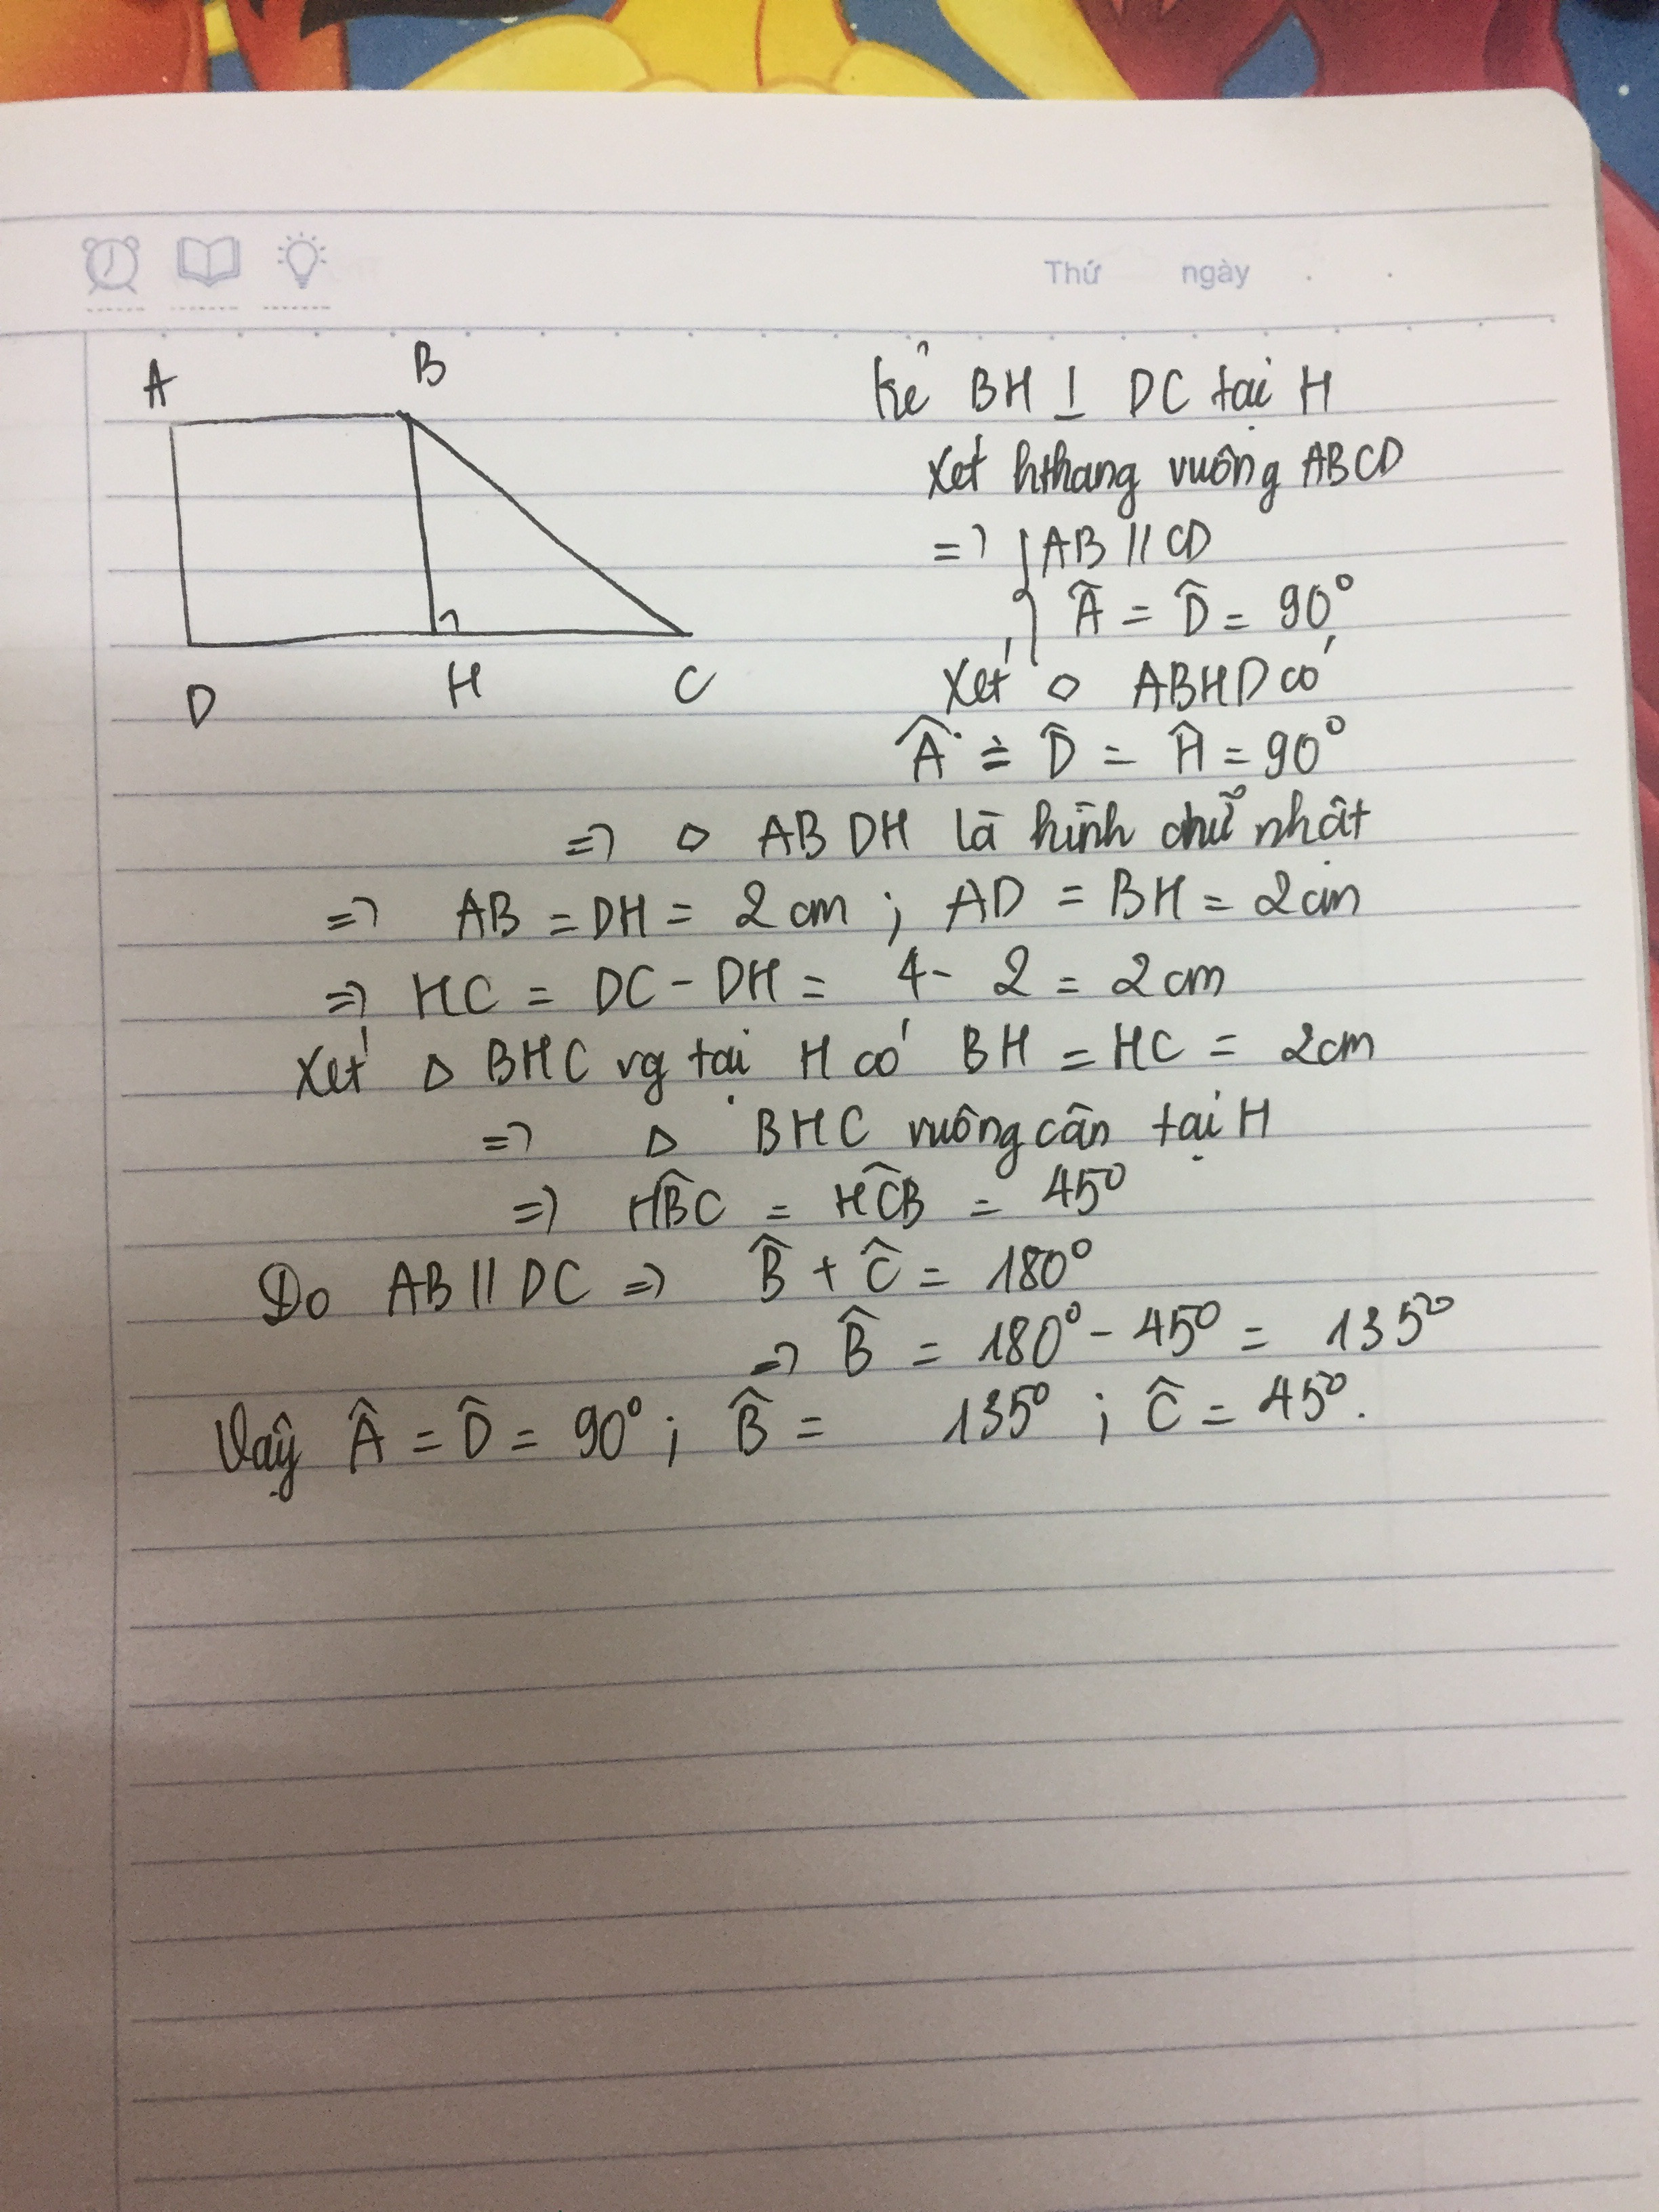 Thứ ngày . .
A B
D H C
Kẻ BH ⊥ DC tại H
Xét hthang vuông ABCD
=> { AB // CD
Â = D̂ = 90°
Xét ◇ ABHD có
Â = D̂ = Ĥ = 90°
=> ◇ ABDH là hình chữ nhật
=> AB = DH = 2 cm ; AD = BH = 2 cm
=> HC = DC - DH = 4 - 2 = 2 cm
Xét Δ BHC vg tại H có BH = HC = 2cm
=> Δ BHC vuông cân tại H
=> HB̂C = HĈB = 45°
Do AB // DC => B̂ + Ĉ = 180°
=> B̂ = 180° - 45° = 135°
Vậy Â = D̂ = 90° ; B̂ = 135° ; Ĉ = 45°.